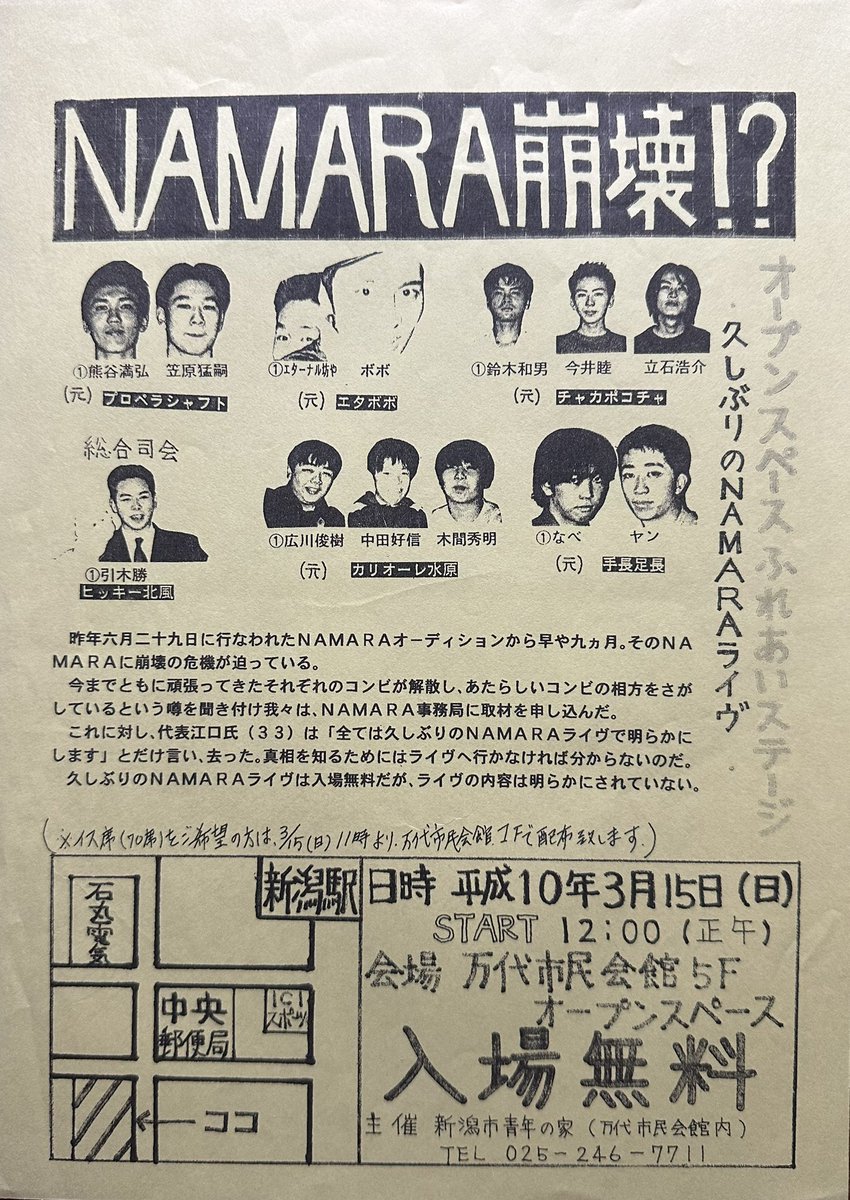 NAMARA崩壊!?
オープンスペースふれあいステージ
久しぶりのNAMARAライヴ
①熊谷満弘 笠原猛嗣
(元) プロペラシャフト
①エターナル坊や ボボ
(元) エタボボ
①鈴木和男 今井睦 立石浩介
(元) チャカポコチャ
総合司会
①引木勝
ヒッキー北風
①広川俊樹 中田好信 木間秀明
(元) カリオーレ水原
①なべ ヤン
(元) 手長足長
昨年六月二十九日に行なわれたNAMARAオーディションから早や九ヵ月。そのNA
MARAに崩壊の危機が迫っている。
今までともに頑張ってきたそれぞれのコンビが解散し、あたらしいコンビの相方をさが
しているという噂を聞き付け我々は、NAMARA事務局に取材を申し込んだ。
これに対し、代表江口氏(33)は「全ては久しぶりのNAMARAライヴで明らかに
します」とだけ言い、去った。真相を知るためにはライヴへ行かなければ分からないのだ。
久しぶりのNAMARAライヴは入場無料だが、ライヴの内容は明らかにされていない。
(※イス席(70席)をご希望の方は、3/15(日)11時より、万代市民会館1Fで配布致します。)
石丸電気
新潟駅
中央
郵便局
ICI
スポーツ
ココ
日時 平成10年3月15日(日)
START 12:00(正午)
会場 万代市民会館5F
オープンスペース
入場無料
主催 新潟市青年の家(万代市民会館内)
TEL 025-246-7711